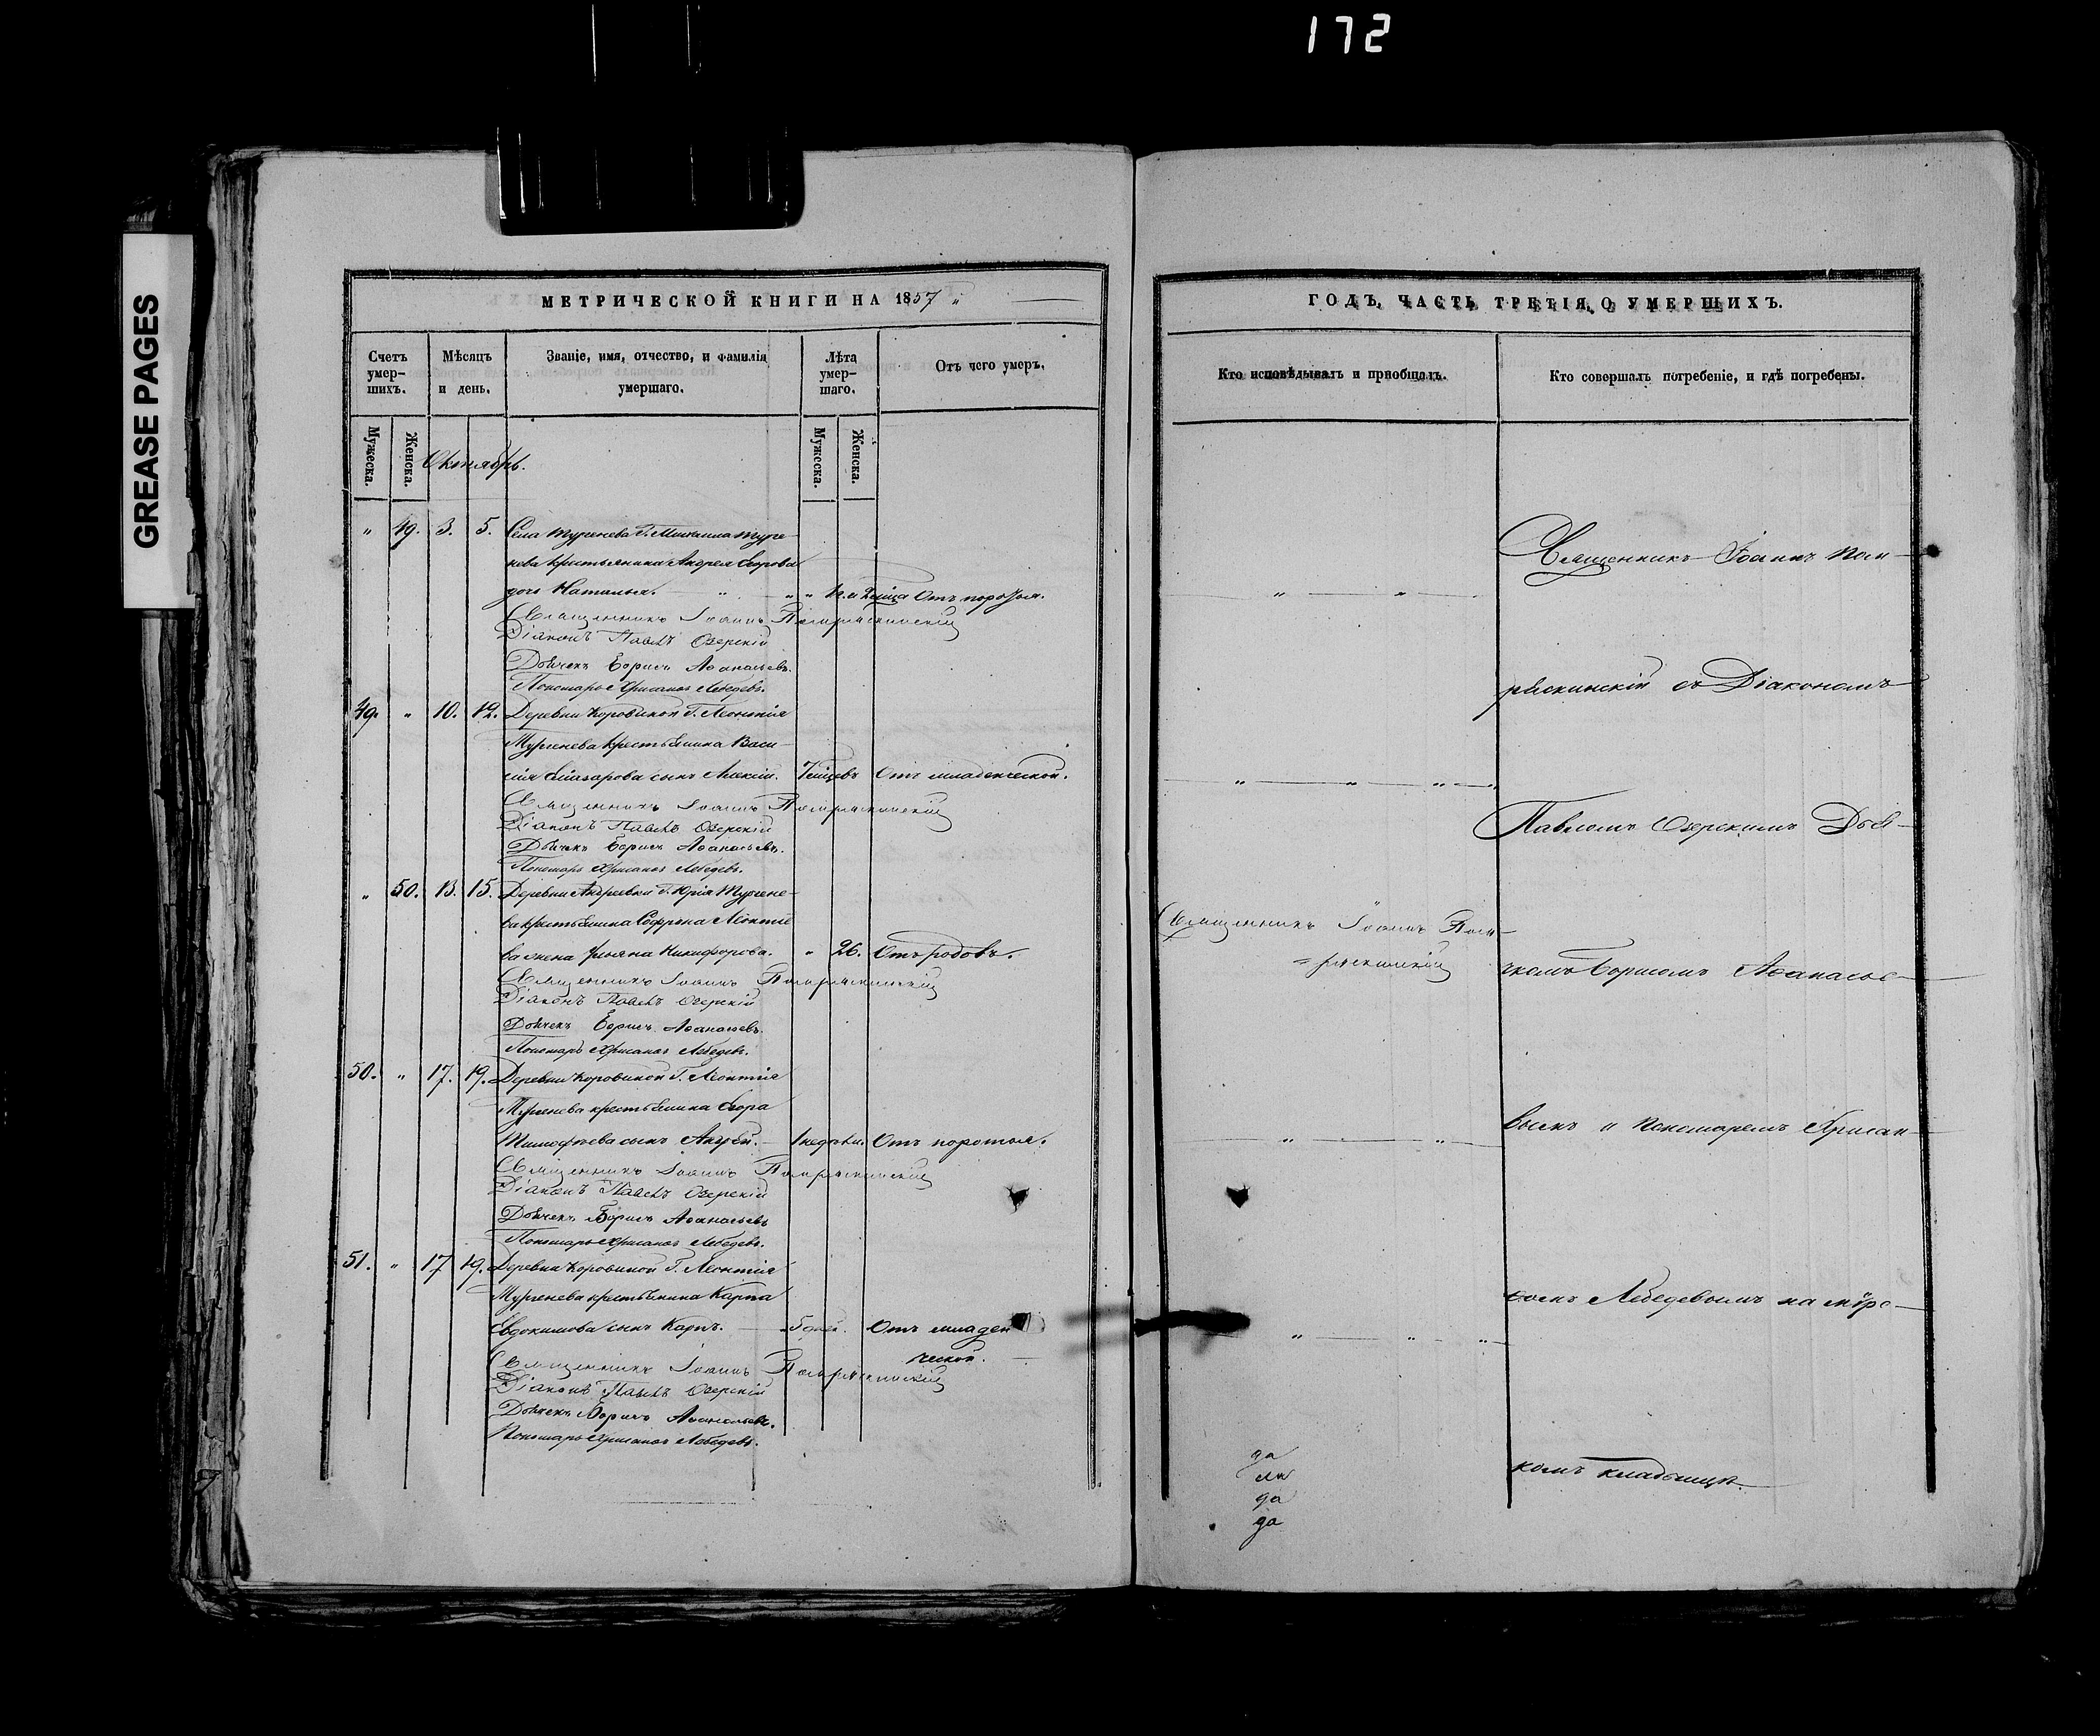 172
GREASE PAGES
МЕТРИЧЕСКОЙ КНИГИ НА 1857 „
Счетъ умер-
шихъ.
Мѣсяцъ
и день.
Званіе, имя, отчество, и фамилія
умершаго.
Лѣта
умер-
шаго.
Отъ чего умеръ.
Мужеска.
Женска.
Октябрь.
Мужеска.
Женска.
„ 49. 3. 5. Села Тургенева Г. Михаила Турге-
нева крестьянина Андрея Егорова
дочь Наталья. „ „ 1 г. и 2 мѣсяца Отъ поноса.
Священникъ Іоаннъ Помряскинскій
Діаконъ Павелъ Озерскій
Дьячекъ Борисъ Аѳанасьевъ.
Пономарь Хрисанѳъ Лебедевъ.
49. „ 10. 12. Деревни Коровиной Г. Леонтія
Тургенева крестьянина Васи-
лія Елазарова сынъ Алексій. 7 мѣсцевъ Отъ младенческой.
Священникъ Іоаннъ Помряскинскій
Діаконъ Павелъ Озерскій
Дьячекъ Борисъ Аѳанасьевъ.
Пономарь Хрисанѳъ Лебедевъ.
„ 50. 13. 15. Деревни Андреевки Г. Юрія Тургене-
ва крестьянина Софрона Леонтіе
ва жена Ульяна Никифорова. „ 26. Отъ родовъ.
Священникъ Іоаннъ Помряскинскій
Діаконъ Павелъ Озерскій
Дьячекъ Борисъ Аѳанасьевъ.
Пономарь Хрисанѳъ Лебедевъ.
50. „ 17. 19. Деревни Коровиной Г. Леонтія
Тургенева крестьянина Егора
Тимофѣева сынъ Андрей. 1 недѣли. Отъ
Священникъ Іоаннъ Помряскинскій
Діаконъ Павелъ Озерскій
Дьячекъ Борисъ Аѳанасьевъ
Пономарь Хрисанѳъ Лебедевъ.
51. „ 17 19. Деревни Коровиной Г. Леонтія
Тургенева крестьянина Карпа
Евдокимова сынъ Карпъ. 5 дней. Отъ младен
ческой.
Священникъ Іоаннъ Помряскинскій
Діаконъ Павелъ Озерскій
Дьячекъ Борисъ Аѳанасьевъ.
Пономарь Хрисанѳъ Лебедевъ.
ГОДЪ, ЧАСТЬ ТРЕТІЯ, О УМЕРШИХЪ.
Кто исповѣдывалъ и пріобщалъ.
Кто совершалъ погребеніе, и гдѣ погребены.
Священникъ Іоаннъ Пом-
ряскинскій съ Діакономъ
Павломъ Озерскимъ Дья-
Священникъ Іоаннъ Пом-
ряскинскій
чкомъ Борисомъ Аѳанасье-
вымъ и Пономаремъ Хрисан-
ѳомъ Лебедевымъ на мірс-
комъ кладбищѣ.
да
да
да